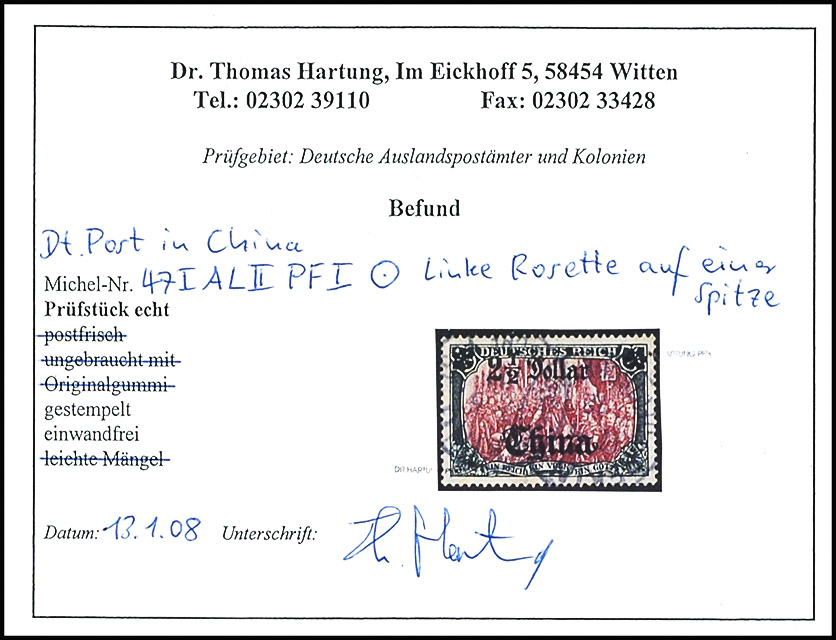 Dr. Thomas Hartung, Im Eickhoff 5, 58454 Witten
Tel.: 02302 39110 Fax: 02302 33428
Prüfgebiet: Deutsche Auslandspostämter und Kolonien
Befund
Dt. Post in China
Michel-Nr. 47I ALII PFI ⊙ Linke Rosette auf einer
Spitze
Prüfstück echt
postfrisch
ungebraucht mit
Originalgummi
gestempelt
einwandfrei
leichte Mängel
DEUTSCHES REICH
2½ Dollar
China
EIN REICH EIN VOLK EIN GOTT
Datum: 13.1.08 Unterschrift: Th. Hartung